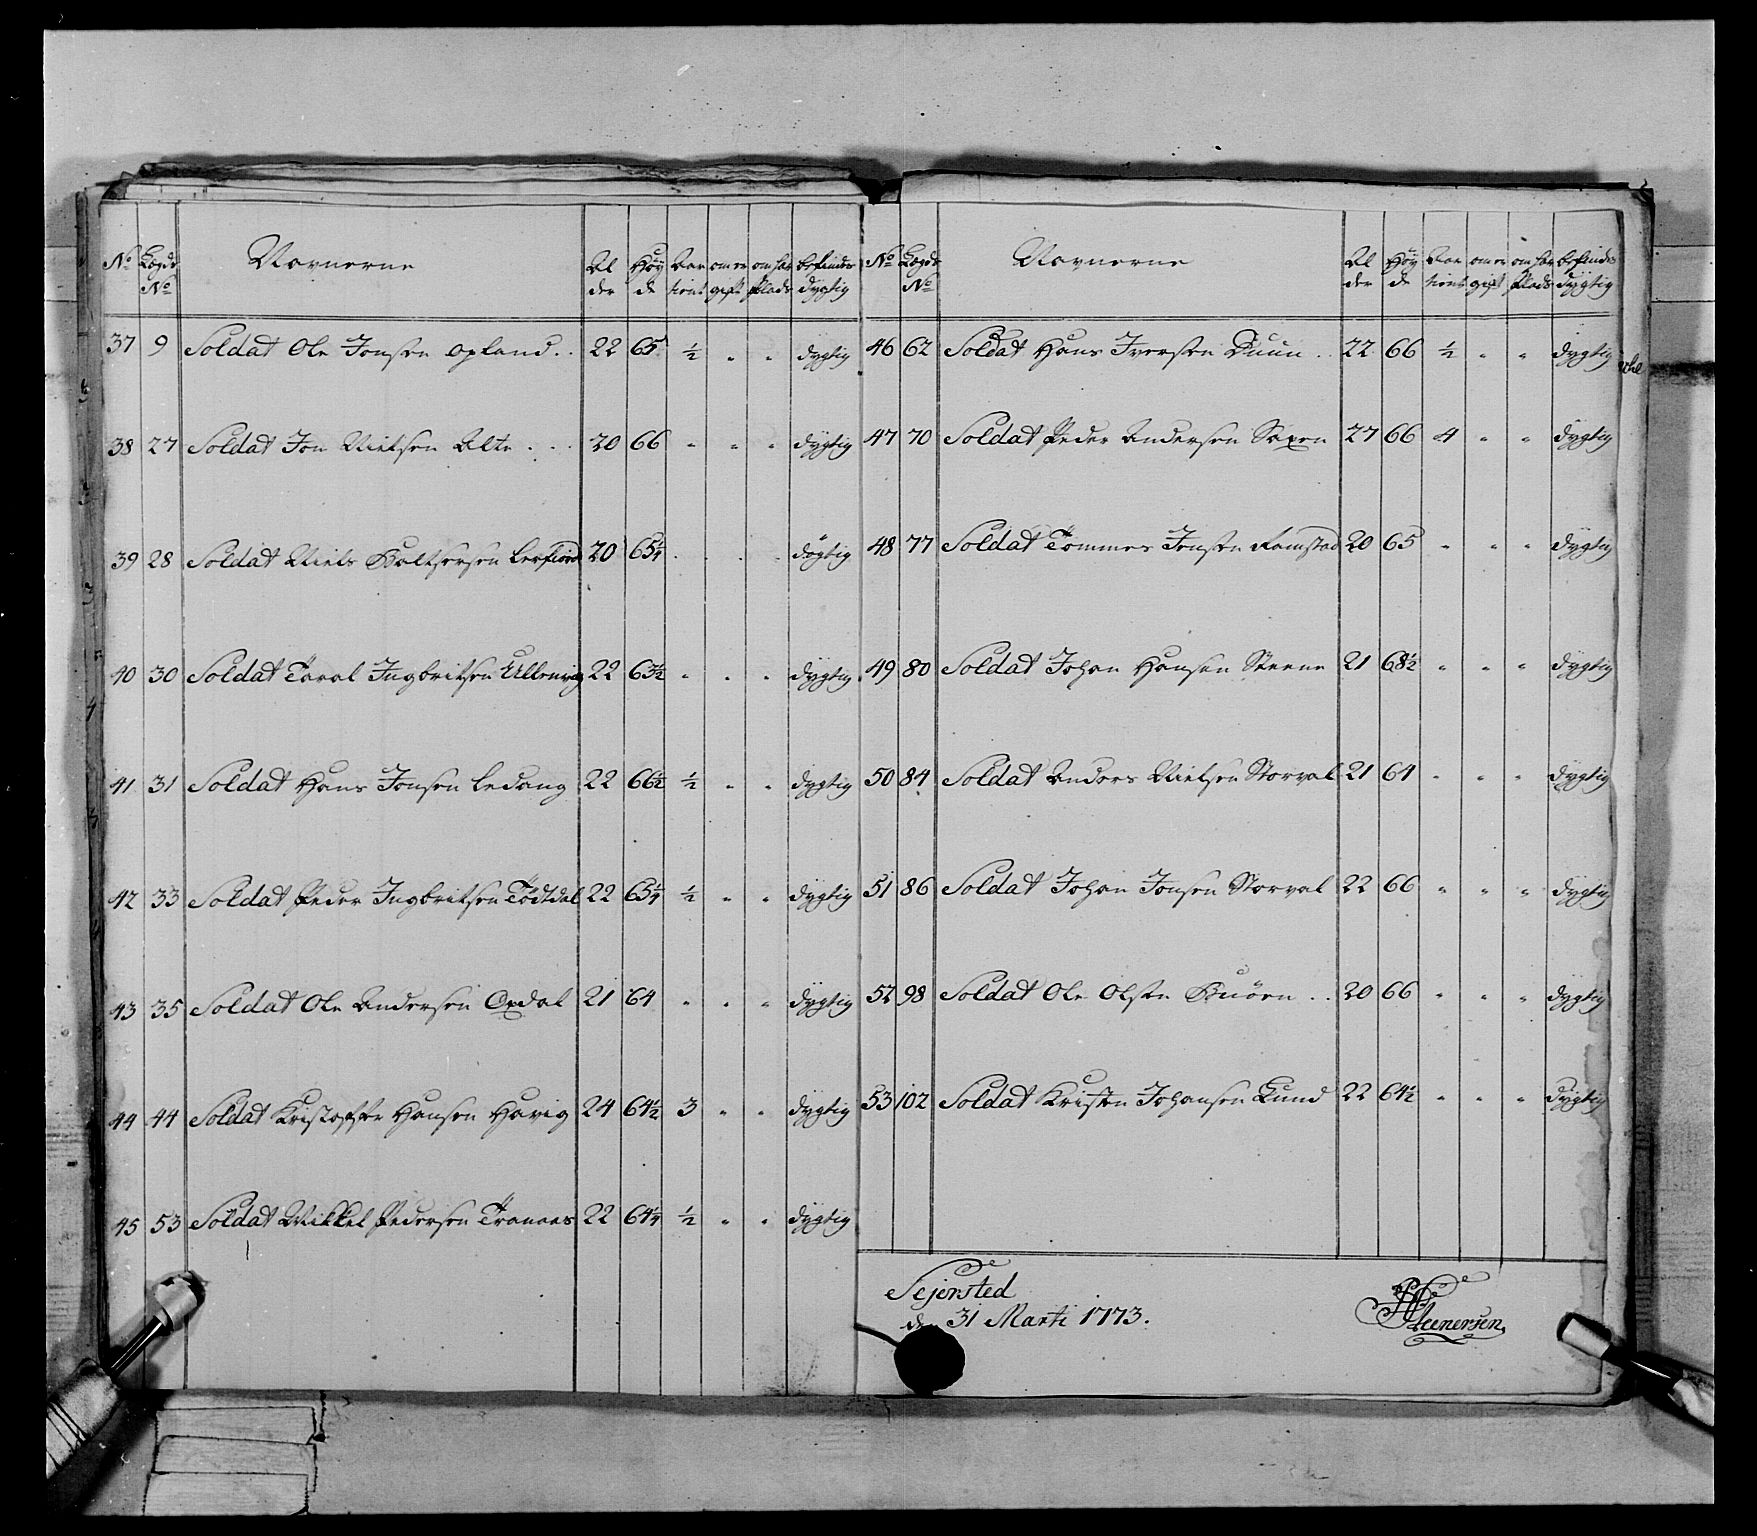 No Lægds No Navnerne Al der Høy de Aar tient om er gift om har Plads befindes dygtig
37 9 Soldat Ole Jonsen Opland . . 22 65 ½ " " dygtig
38 27 Soldat Jon Nielsen Alte . . . 20 66 " " " dygtig
39 28 Soldat Niels Baltsersen Lerfiord 20 65¼ . . . dygtig
40 30 Soldat Taral Ingbritsen Ullenvig 22 63½ " " " dygtig
41 31 Soldat Hans Jonsen Ledang 22 66½ ½ " " dygtig
42 33 Soldat Peder Ingbritsen Tødtdal 22 65¼ ½ " " dygtig
43 35 Soldat Ole Andersen Opdal 21 64 " " " dygtig
44 44 Soldat Kristoffer Hansen Havig 24 64½ 3 " " dygtig
45 53 Soldat Mikkel Pedersen Tranaas 22 64¼ ½ " " dygtig
No Lægds No Navnerne Al der Høy de Aar tient om er gift om har Plads befindes dygtig
46 62 Soldat Hans Iversen Duun . . 22 66 ½ " " dygtig
47 70 Soldat Peder Andersen Saxen 27 66 4 " " dygtig
48 77 Soldat Tommes Jonsen Ramstad 20 65 " " " dygtig
49 80 Soldat Johan Hansen Steene 21 68½ " " " dygtig
50 84 Soldat Anders Nielsen Storval 21 64 " " " dygtig
51 86 Soldat Johan Jonsen Storval 22 66 " " " dygtig
52 98 Soldat Ole Olsen Buøen . . 20 66 " " " dygtig
53 102 Soldat Kristen Johansen Lund 22 64½ " " " dygtig
Sejersted
31 Marti 1773.